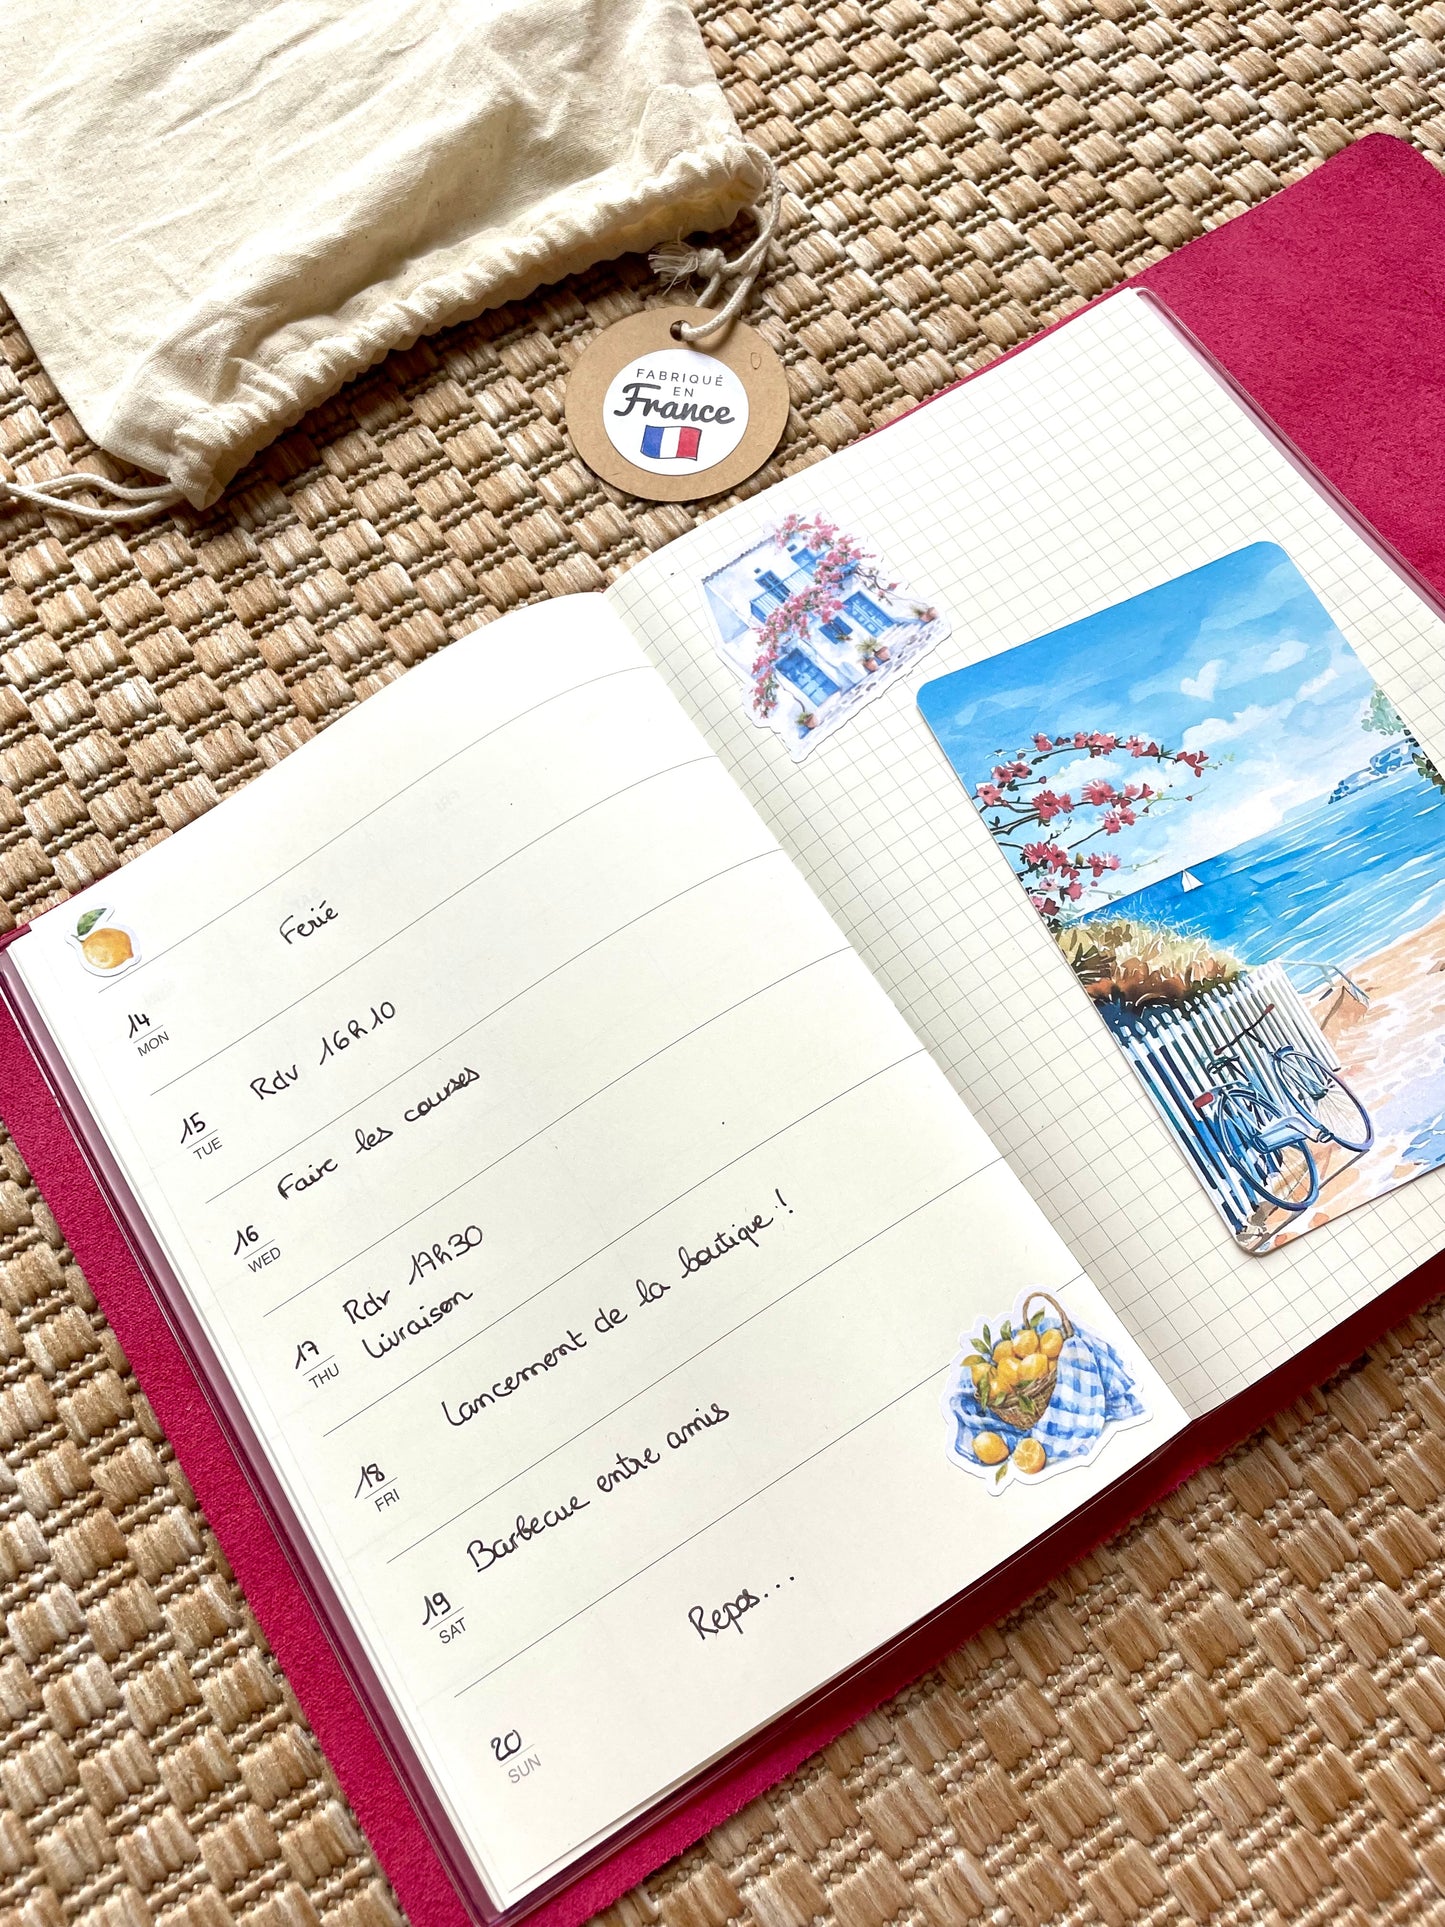 FABRIQUÉ
EN
France
Ferié
14
MON
Rdv 16h10
15
TUE
Faire les courses
16
WED
Rdv 17h30
Livraison
17
THU
Lancement de la boutique !
18
FRI
Barbecue entre amis
19
SAT
Repos...
20
SUN